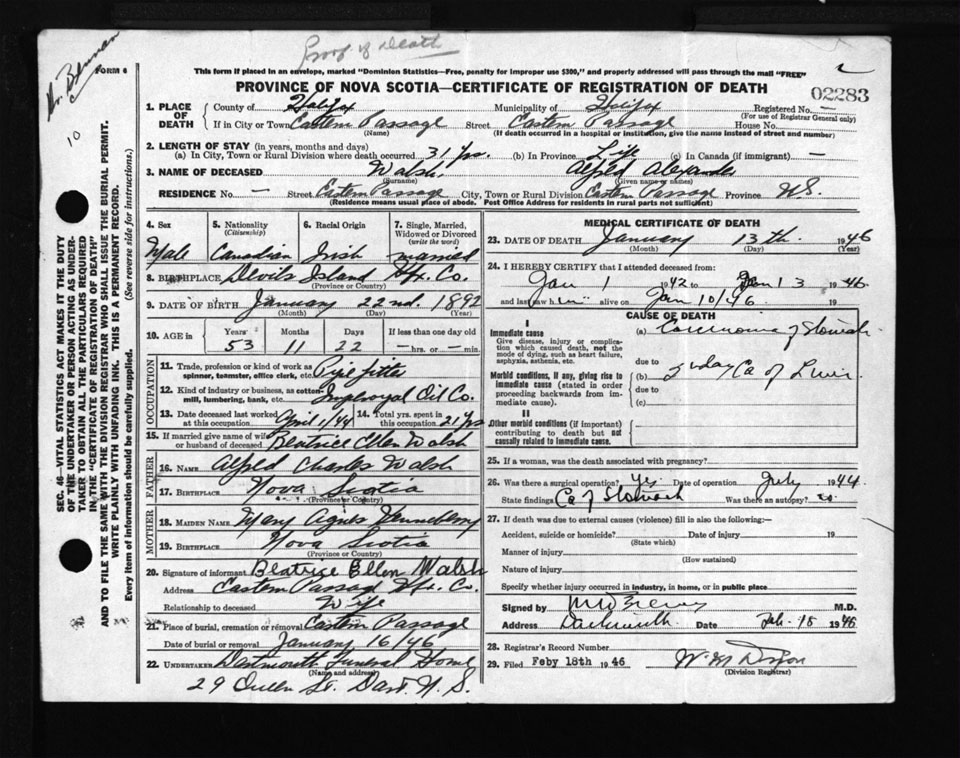 Proof of Death
Dr. Brennan
10
FORM 6
This form if placed in an envelope, marked "Dominion Statistics—Free, penalty for improper use $300," and properly addressed will pass through the mail "FREE"
PROVINCE OF NOVA SCOTIA—CERTIFICATE OF REGISTRATION OF DEATH
02283
SEC. 46—VITAL STATISTICS ACT MAKES IT THE DUTY
OF THE UNDERTAKER OR PERSON ACTING AS UNDER-
TAKER TO OBTAIN ALL THE PARTICULARS REQUIRED
IN THE "CERTIFICATE OF REGISTRATION OF DEATH"
AND TO FILE THE SAME WITH THE DIVISION REGISTRAR WHO SHALL ISSUE THE BURIAL PERMIT.
WRITE PLAINLY WITH UNFADING INK. THIS IS A PERMANENT RECORD.
Every item of information should be carefully supplied. (See reverse side for instructions.)
1. PLACE OF DEATH County of Halifax Municipality of Halifax Registered No. —
(For use of Registrar General only)
If in City or Town Eastern Passage Street Eastern Passage House No.
(Name) (If death occurred in a hospital or institution, give the name instead of street and number)
2. LENGTH OF STAY (in years, months and days)
(a) In City, Town or Rural Division where death occurred 31 Yrs. (b) In Province Life (c) In Canada (if immigrant) —
3. NAME OF DECEASED Walsh, Alfred Alexander
(Surname) (Given name or names)
RESIDENCE No. — Street Eastern Passage City, Town or Rural Division Eastern Passage Province N.S.
(Residence means usual place of abode. Post Office Address for residents in rural parts not sufficient)
4. Sex 5. Nationality (Citizenship) 6. Racial Origin 7. Single, Married, Widowed or Divorced (write the word)
Male Canadian Irish married
8. BIRTHPLACE Devils Island Hfx. Co.
(Province or Country)
9. DATE OF BIRTH January 22nd. 1892
(Month) (Day) (Year)
10. AGE in Years Months Days If less than one day old
53 11 22 — hrs. or — min.
OCCUPATION
11. Trade, profession or kind of work as spinner, teamster, office clerk, etc. Pipe fitter
12. Kind of industry or business, as cotton mill, lumbering, bank, etc. Imp royal Oil Co.
13. Date deceased last worked at this occupation April 1/44 14. Total yrs. spent in this occupation 21 Yrs
15. If married give name of wife or husband of deceased Beatrice Ellen Walsh
FATHER
16. NAME Alfred Charles Walsh
17. BIRTHPLACE Nova Scotia
(Province or Country)
MOTHER
18. MAIDEN NAME Mary Agnes Henneberry
19. BIRTHPLACE Nova Scotia
(Province or Country)
20. Signature of informant Beatrice Ellen Walsh
Address Eastern Passage Hfx. Co.
Relationship to deceased Wife
21. Place of burial, cremation or removal Eastern Passage
Date of burial or removal January 16/46
22. UNDERTAKER Dartmouth Funeral Home
(Name and address)
29 Queen St. Dart. N.S.
MEDICAL CERTIFICATE OF DEATH
23. DATE OF DEATH January 13th. 1946
(Month) (Day) (Year)
24. I HEREBY CERTIFY that I attended deceased from:
Jan 1 1942 to Jan 13 1946
and last saw him alive on Jan 10/46 19
CAUSE OF DEATH
I
Immediate cause (a) Carcinoma of Stomach
Give disease, injury or complication which caused death, not the mode of dying, such as heart failure, asphyxia, asthenia, etc. due to
Morbid conditions, if any, giving rise to immediate cause (stated in order proceeding backwards from immediate cause). (b) 2nday Ca of Liver
due to
(c)
II
Other morbid conditions (if important) contributing to death but not causally related to immediate cause.
25. If a woman, was the death associated with pregnancy?
26. Was there a surgical operation? Yes Date of operation July 1944
State findings Ca of Stomach Was there an autopsy? no
27. If death was due to external causes (violence) fill in also the following:—
Accident, suicide or homicide? Date of injury 19
(State which)
Manner of injury
(How sustained)
Nature of injury
Specify whether injury occurred in industry, in home, or in public place
Signed by M.D.
Address Dartmouth Date Feb. 15 1946
28. Registrar's Record Number
29. Filed Feby 18th 1946
(Division Registrar)